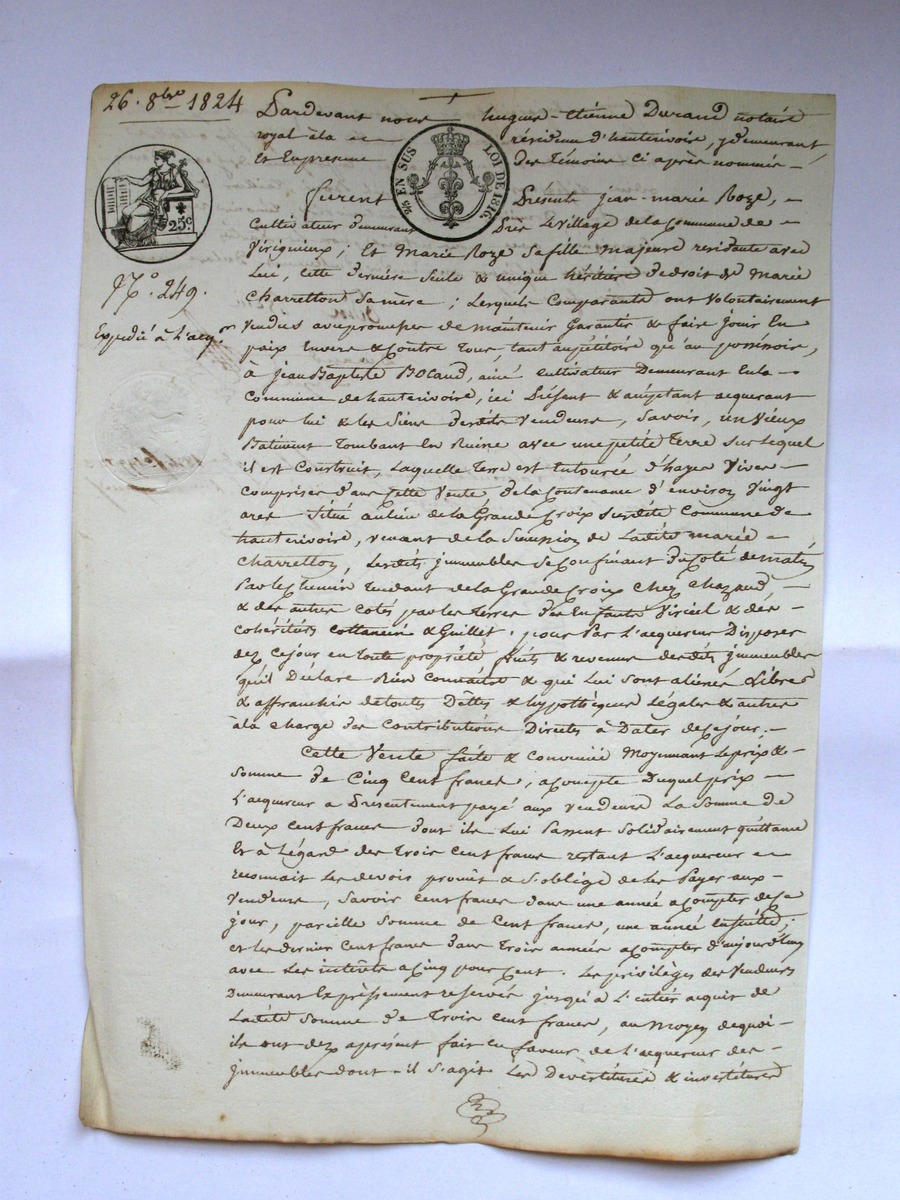 26. 8bre 1824
Pardevant nous hugues-étienne Durand notaire
royal à la résidence d'hauterivoire, y demeurant
Et En présence des témoins ci après nommés
2/5 EN SUS LOI DE 1816.
25c
furent Présents jean-marie Roze,
Cultivateur demeurant Dès le Village de la Commune de
Virigneux; Et Marie Roze sa fille majeure residante avec
N°. 249.
Lui, cette dernière seule & unique héritière de droit de Marie
Charretton sa mère; Lesquels Comparants ont volontairement
Expedié à L'acqr.
vendus avec promesse de maintenir Garantir & faire jouir En
paix Envers & Contre tous, tant au pétitoire qu'au possessoire,
à jean Baptiste Bocaud, ainé cultivateur Demeurant En la
Commune de hauterivoire, ici Présent & acceptant acquerant
pour lui & les Siens desdits vendeurs, Savoir, un vieux
Batiment tombant En Ruine avec une petite terre sur Lequel
il est Construit, Laquelle terre est Entourée d'hayes vives
comprises dans Cette Vente, de la Contenance d'environ vingt
ares Situé au lieu de la Grande Croix susdite Commune de
hauterivoire, venant de la Succession de Ladite marie
Charretton, Lesdits jmmeubles se Confinant du Coté de matin
Par le chemin tendant de la Grande Croix Chez Chazaud,
& des autres cotés par les terres des Enfants Viricel & des
cohéritiers cottancin & Guillet. pour Par L'acquereur Disposer
dez ce jour en toute propriété fruits & revenus desdits jmmeubles
qu'il Déclare Bien Connaitre & qui Lui sont aliénés Libres
& affranchis de toutes Dêttes & hypothèques Légales & autres
à la Charge des Contributions Directes à Dater de ce jour.
Cette Vente faite & Convenue Moyennant le prix &
Somme de Cinq Cent francs; a Compte duquel prix
L'acquereur a Presentement payé aux vendeurs La Somme de
Deux Cent francs dont ils Lui Passent Solidairement quittance
Et à L'égard des trois Cent francs restant L'acquereur
reconnait Les devoir promet & s'oblige de les Payer aux
vendeurs, Savoir Cent francs dans une année a Compter de ce
jour, pareille Somme de Cent francs, une année ensuitte;
et les dernier Cent francs dans trois années a Compter d'aujourd'huy
avec Les intérêts a Cinq pour Cent. Les privilèges des vendeurs
Demeurant Expréssement reservés jusqu'à L'entier acquit de
Ladite Somme de trois Cent francs, au moyen de quoi
ils ont dez aprésent fait En faveur de L'acquereur des
jmmeubles dont il s'agit Les Devestitures & investitures